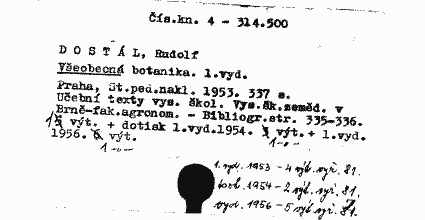 Čís.kn. 4 - 314.500
D O S T Á L, Rudolf
Všeobecná botanika. 1.vyd.
Praha, St.ped.nakl. 1953. 337 s.
Učební texty vys. škol. Vys.šk.zeměd. v
Brně-fak.agronom. - Bibliogr.str. 335-336.
výt. + dotisk 1.vyd.1954. výt. + 1.vyd.
1956. výt.
1.vyd. 1953 - 4 výt. vyř. 81.
1954 - 2 výt. vyř. 81.
vyd. 1956 - 5 výt. vyř. 81.